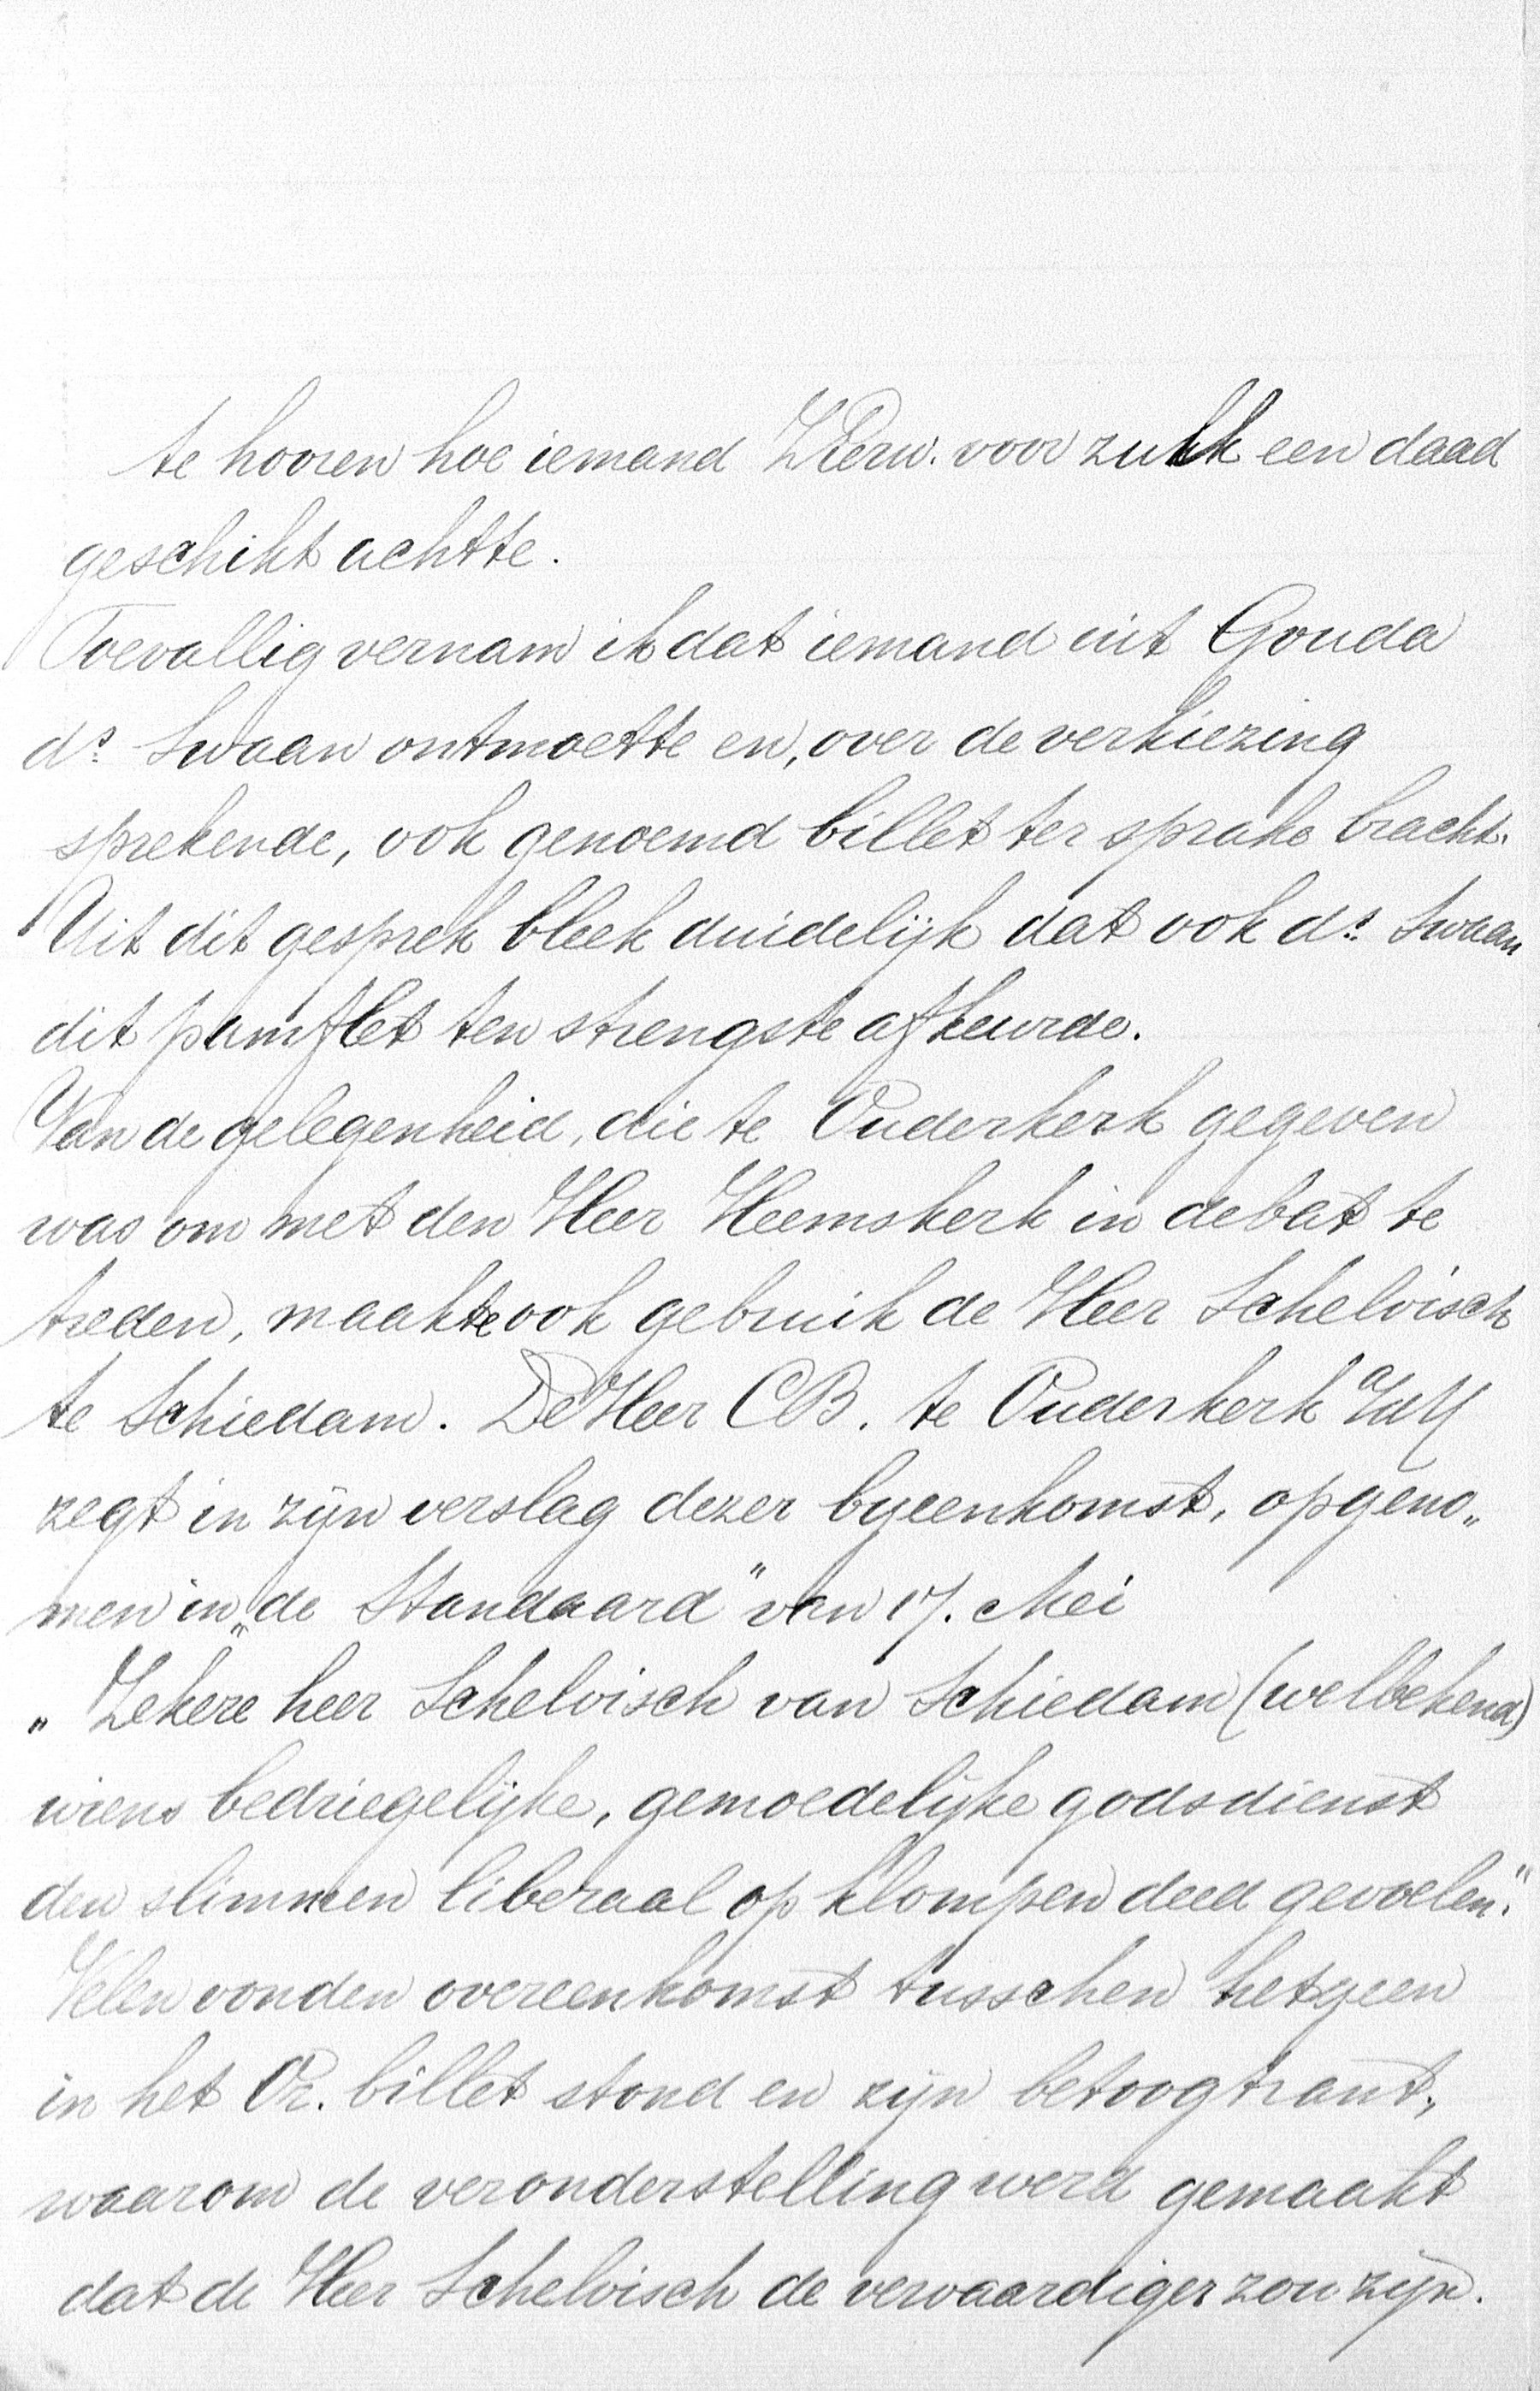 te hooren hoe iemand ZEerw. voor zulk een daad
geschikt achtte.
Toevallig vernam ik dat iemand uit Gouda
ds. Swaan ontmoette en, over de verkiezing
sprekende, ook genoemd billet ter sprake bracht.
Uit dit gesprek bleek duidelijk dat ook ds. Swaan
dit pamflet ten strengste afkeurde.
Van de gelegenheid, die te Ouderkerk gegeven
was om met den Heer Heemskerk in debat te
treden, maakte ook gebruik de Heer Schelvisch
te Schiedam. De Heer CB. te Ouderkerk
zegt in zijn verslag dezer byeenkomst, opgeno„
men in „de Standaard" van 17. Mei
„Zekere heer Schelvisch van Schiedam (welbekend)
wiens bedriegelijke, gemoedelijke godsdienst
den slimmen liberaal op klompen deed gevoelen".
Velen vonden overeenkomst tusschen hetgeen
in het Or. billet stond en zijn betoogtrant,
waarom de veronderstelling werd gemaakt
dat de Heer Schelvisch de vervaardiger zou zijn.